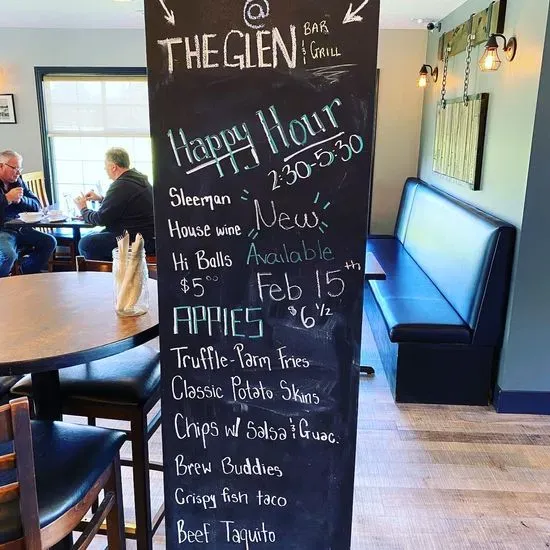 @
THE GLEN BAR & GRILL
Happy Hour
2:30-5:30
Sleeman
House wine
Hi Balls
$5⁰⁰
New
Available
Feb 15th
APPIES $6 1/2
Truffle-Parm Fries
Classic Potato Skins
Chips w/ Salsa & Guac.
Brew Buddies
Crispy fish taco
Beef Taquito